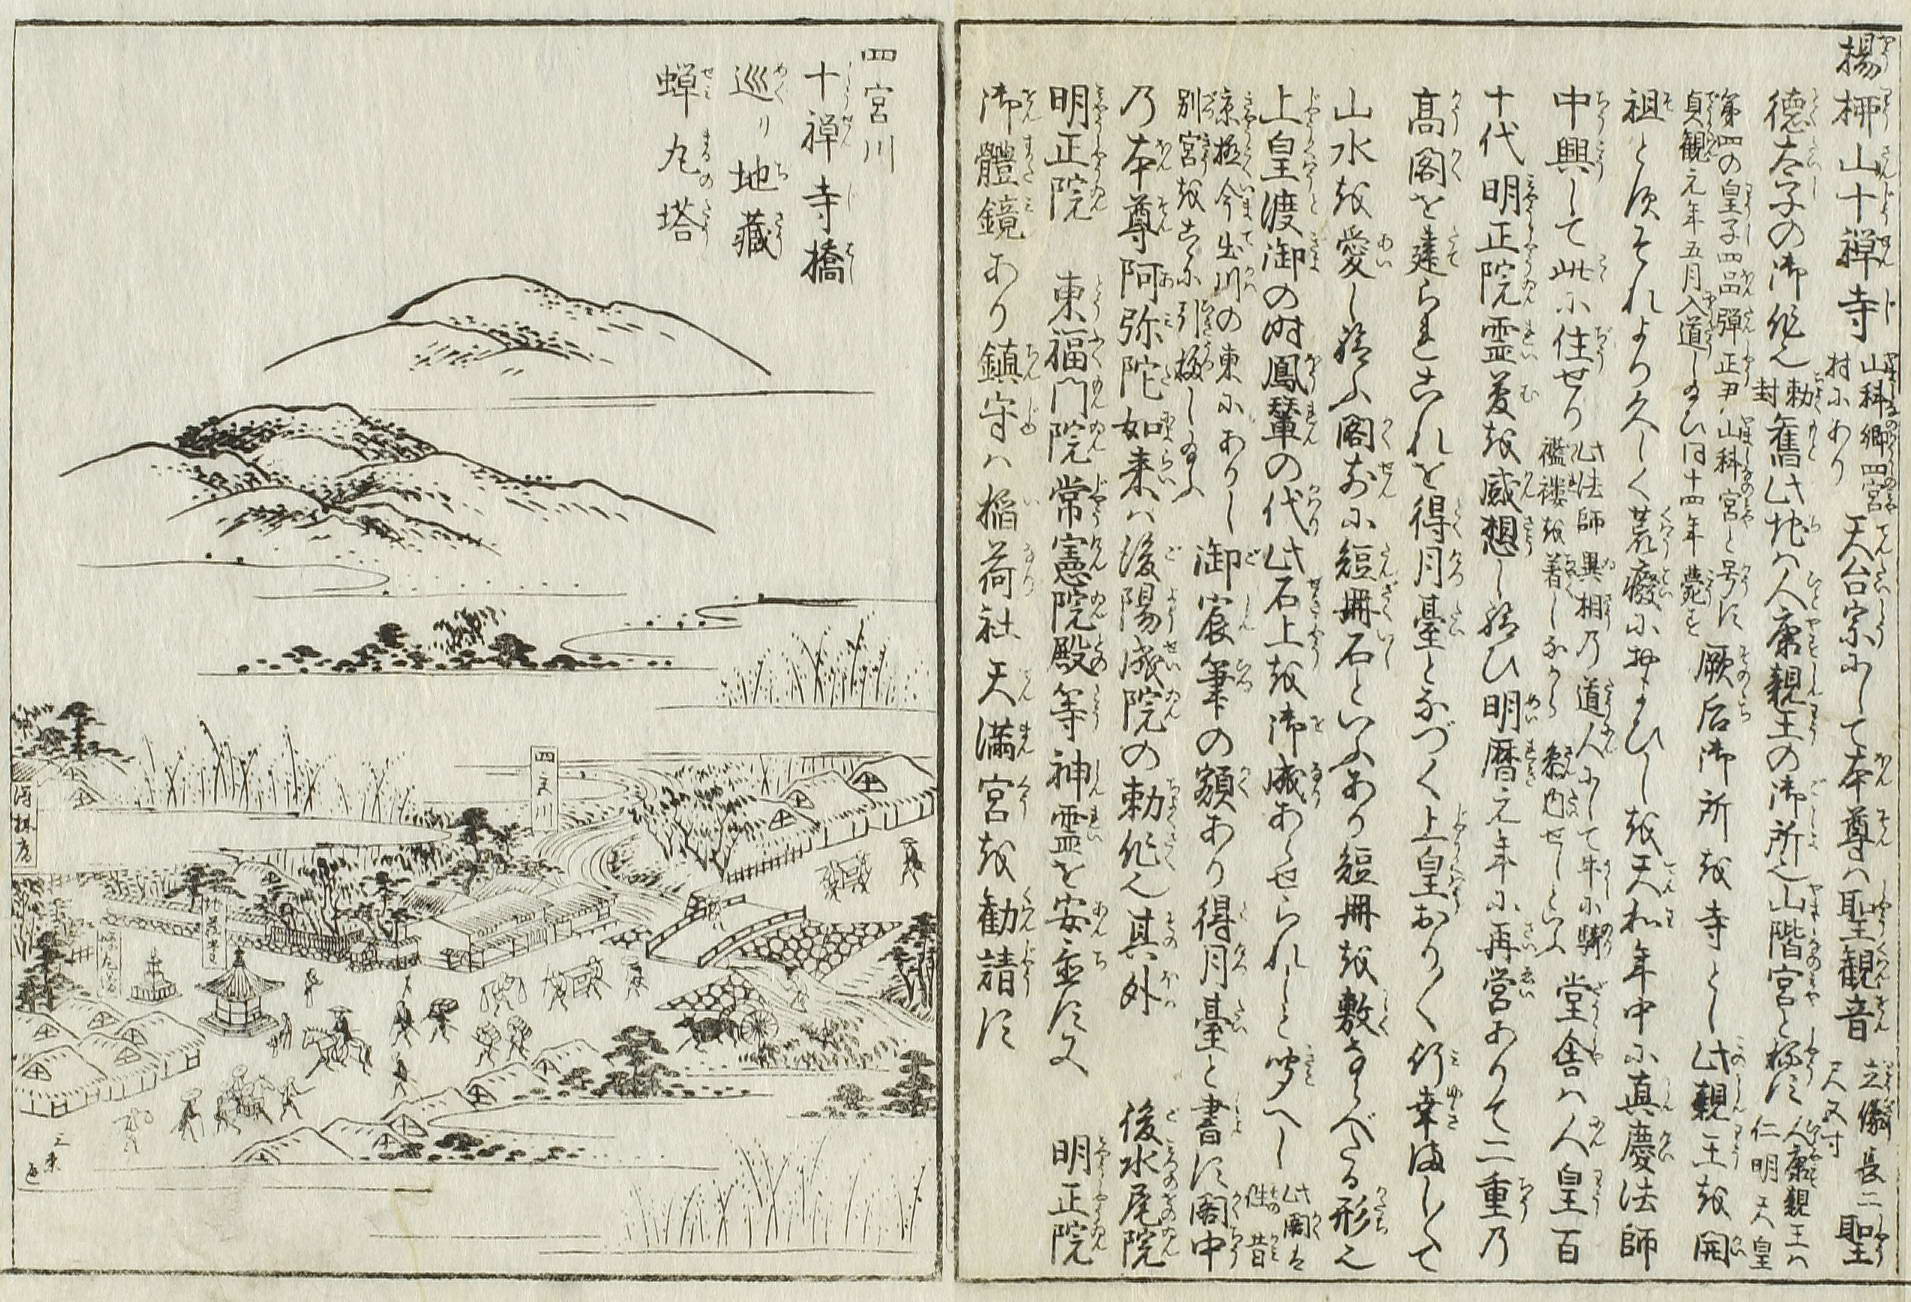 楊柳山十禅寺 山科郷四宮村にあり 天台宗にして本尊は聖観音 立像長二尺五寸 聖
徳太子の御作也 勅封 舊此地は人康親王の御所也山階宮と称す 人康親王は仁明天皇
第四の皇子四品弾正尹山科宮と号す貞観元年五月入道し給ひ同十四年薨ず 厥后御所を寺とし此親王を開
祖とすそれより久しく荒廃に及びしを天和年中に真慶法師
中興して此に住せり 此法師異相の道人にして牛に騎襤褸を着しながら参内せしといふ 堂舎は人皇百
十代明正院霊夢を感想し給ひ明暦元年に再営ありて二重の
高閣を建らるこれを得月臺となづく上皇おり〳〵行幸ましまして
山水を愛し給ふ閣前に短冊石といふあり短冊を敷ならべたる形也
上皇渡御の時鳳輦の代此石上を御成あらせられしと聞へし 此閣は往昔
京極今出川の東にありし別宮をこゝに引移し給ふ 御宸筆の額あり得月臺と書す閣中
乃本尊阿弥陀如来は後陽成院の勅作也其外 後水尾院
明正院 東福門院常憲院殿等神霊を安置す又 明正院
御體鏡あり鎮守は稲荷社天満宮を勧請す
四宮川
十禅寺橋
巡り地蔵
蝉丸塔
四宮川
地蔵堂